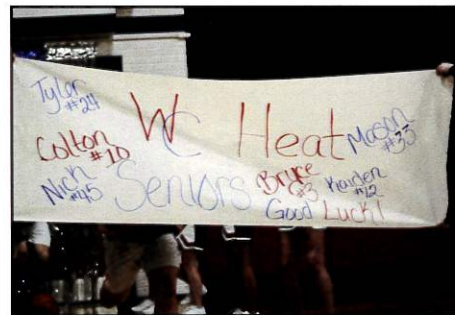 Tyler
#24
WC Heat
Mason
#33
Colton
#10
Nick
#45
Seniors
Bryce
#3
Kaiden
#12
Good Luck!